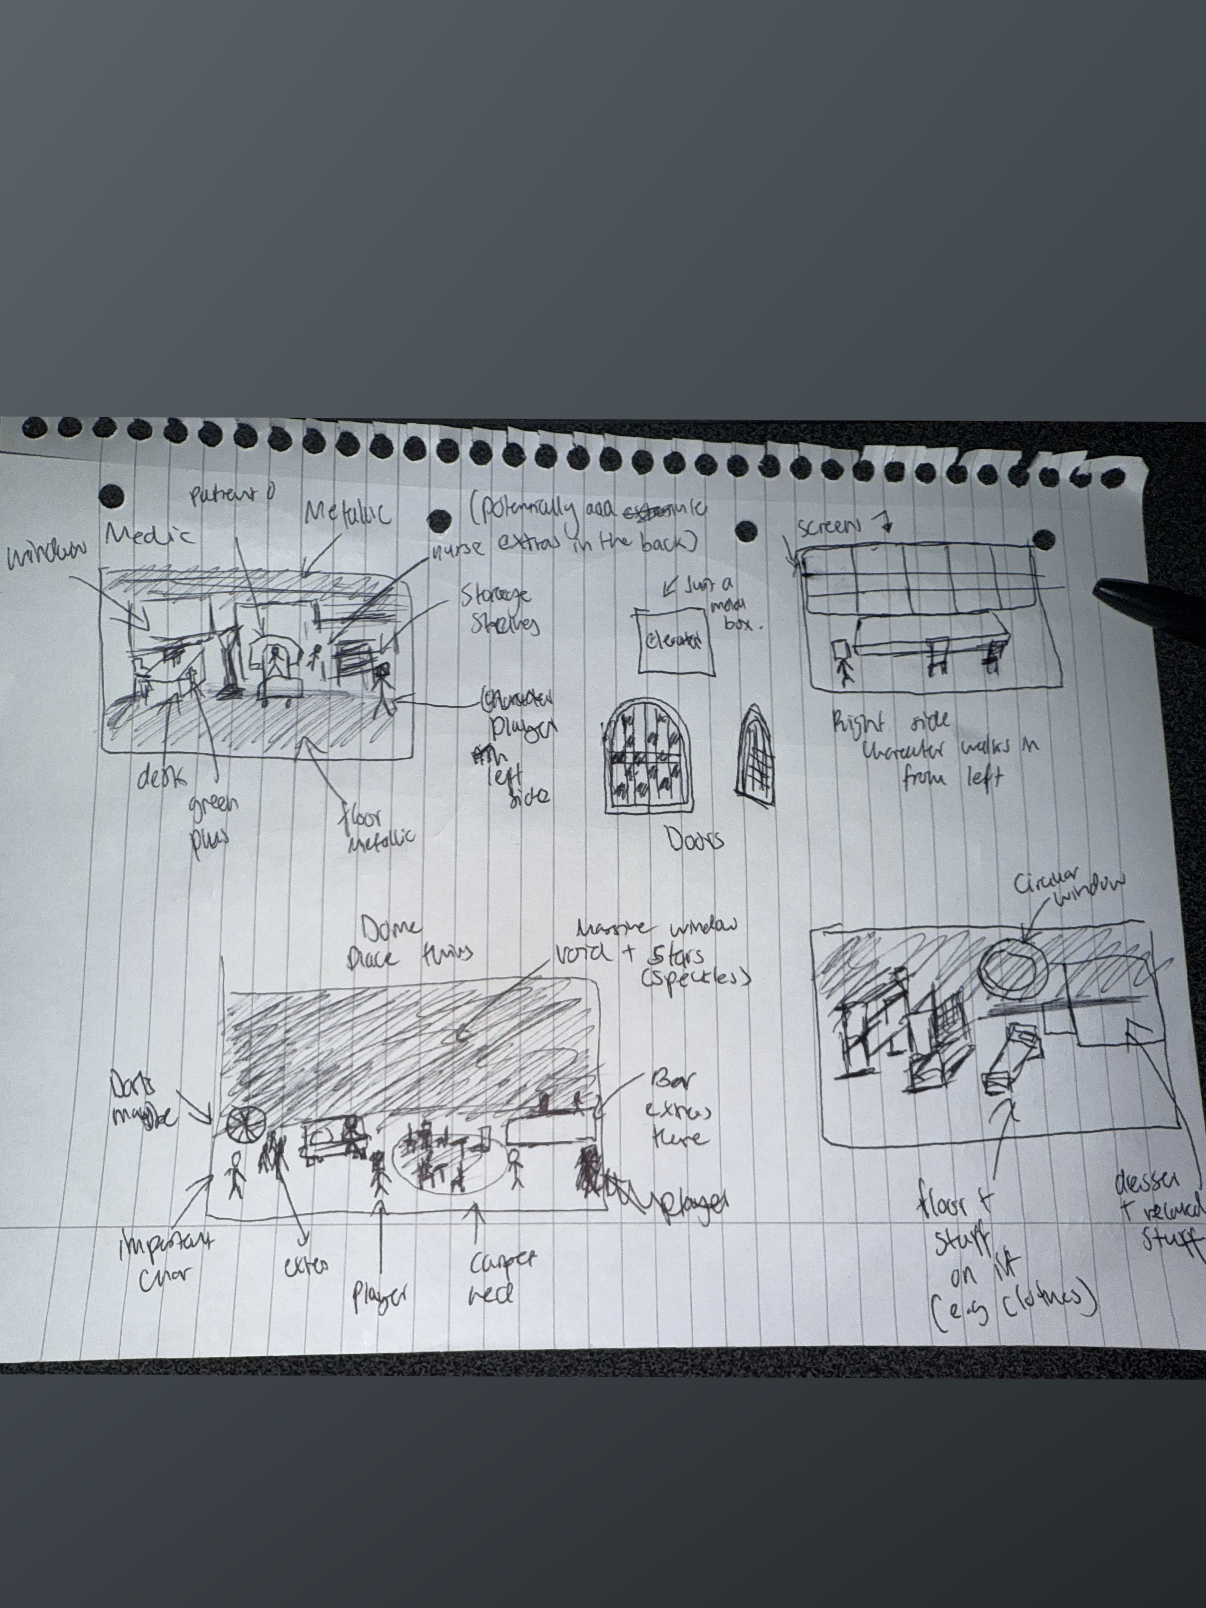 patient 0
Metallic
Medic
window
(potentially add
nurse extras in the back)
Storage
Shelves
Character
player
left
side
desk
green
plus
floor
metallic
Just a
metal
box.
elevator
Doors
screens
Right side
Character walks in
from left
Dome
Place
Massive window
void + stars
(speckles)
Darts
maybe
Bar
extras
there
player
important
char
extra
player
carpet
red
circular
window
floor +
stuff
on it
(e.g clothes)
dresser
+ related
stuff